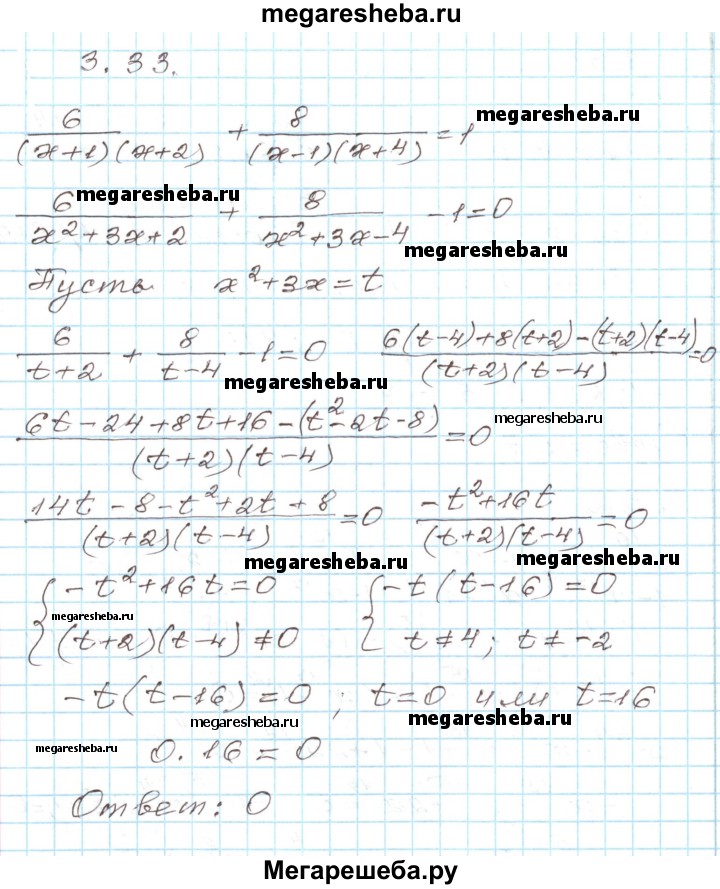 megaresheba.ru
3.33.
6/((x+1)(x+2)) + 8/((x-1)(x+4)) = 1
megaresheba.ru
megaresheba.ru
6/(x²+3x+2) + 8/(x²+3x-4) - 1 = 0
megaresheba.ru
Пусть x²+3x=t
6/(t+2) + 8/(t-4) - 1 = 0 (6(t-4)+8(t+2)-(t+2)(t-4))/((t+2)(t-4)) = 0
megaresheba.ru
(6t-24+8t+16-(t²-2t-8))/((t+2)(t-4)) = 0
megaresheba.ru
(14t-8-t²+2t+8)/((t+2)(t-4)) = 0 (-t²+16t)/((t+2)(t-4)) = 0
megaresheba.ru megaresheba.ru
{ -t²+16t=0 { -t(t-16)=0
megaresheba.ru
(t+2)(t-4)≠0 t≠4; t≠-2
-t(t-16)=0; t=0 или t=16
megaresheba.ru megaresheba.ru
megaresheba.ru 0.16=0
Ответ: 0
Мегарешеба.ру